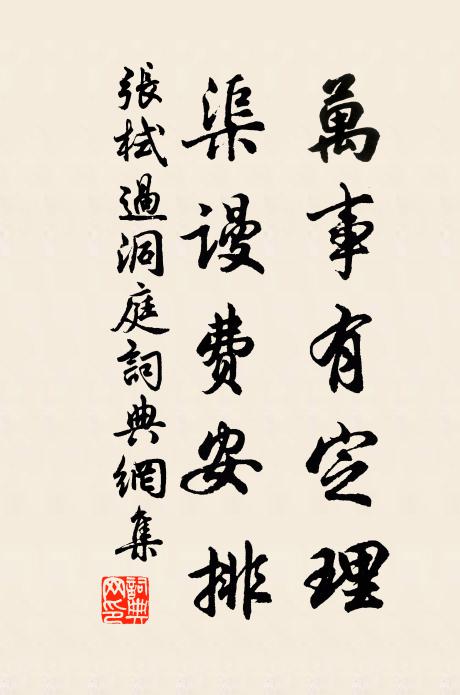 萬事有定理
渠謾費安排
張栻過洞庭詞典網集
詞典網印